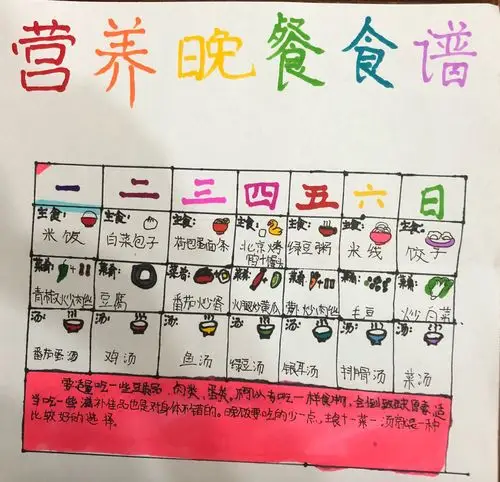 营养晚餐食谱
一 二 三 四 五 六 日
主食: 主食: 主食: 主食: 主食: 主食: 主食:
米饭 白菜包子 荷包蛋面条 北京烤鸭+馒头 绿豆粥 米线 饺子
菜肴: 菜肴: 菜肴: 菜肴: 菜肴: 菜肴: 菜肴:
青椒火火肉丝 豆腐 番茄炒蛋 火腿炒黄瓜 萝卜炒肉丝 毛豆 炒白菜
汤: 汤: 汤: 汤: 汤: 汤: 汤:
番茄蛋汤 鸡汤 鱼汤 绿豆汤 银耳汤 排骨汤 菜汤
要适量吃一些豆制品，肉类，蛋类。不可以专吃一样食物，适
当吃一些滋补佳品也是对身体不错的。晚饭要吃的少一点，主食十一菜一汤都是一种
比较好的选择。